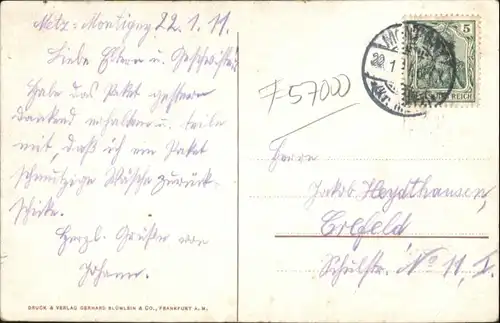 Metz-Montigny 22.1.11.
Liebe Eltern u. Geschwister!
Habe das Paket gestern
dankend erhalten u. teile
mit, daß ich ein Paket
schmutzige Wäsche zurück-
schicke.
Herzl. Grüße von
Johann.
DRUCK & VERLAG GERHARD BLÜMLEIN & CO., FRANKFURT A. M.
5
REICH
F 57000
Herrn
Jakob Heydthausen,
Crefeld
Schulstr. No 11, I.